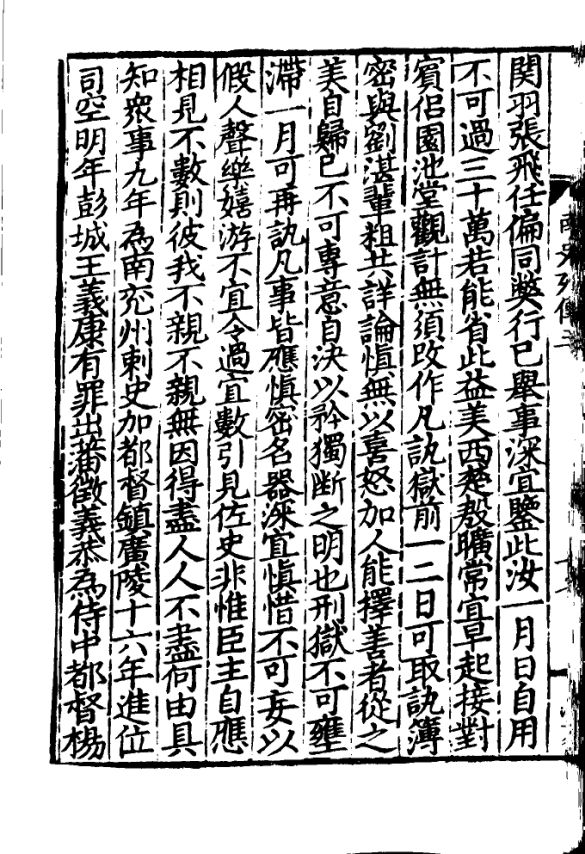 関羽張飛任偏同弊行已舉事深宜鑒此汝一月日自用
不可過三十萬若能省此益美西楚殷曠常宜早起接對
賔侣園池堂觀計無須改作凡訊獄前一二日可取訊簿
密與劉湛輩粗共詳論慎無以喜怒加人能擇善者從之
美自歸已不可專意自決以矜獨断之明也刑獄不可壅
滯一月可再訊凡事皆應慎密名器深宜慎惜不可妄以
假人聲樂嬉游不宜令過宜數引見佐史非惟臣主自應
相見不數則彼我不親不親無因得盡人人不盡何由具
知衆事九年為南兖州刺史加都督鎮廣陵十六年進位
司空明年彭城王義康有罪出藩徵義恭為侍中都督楊